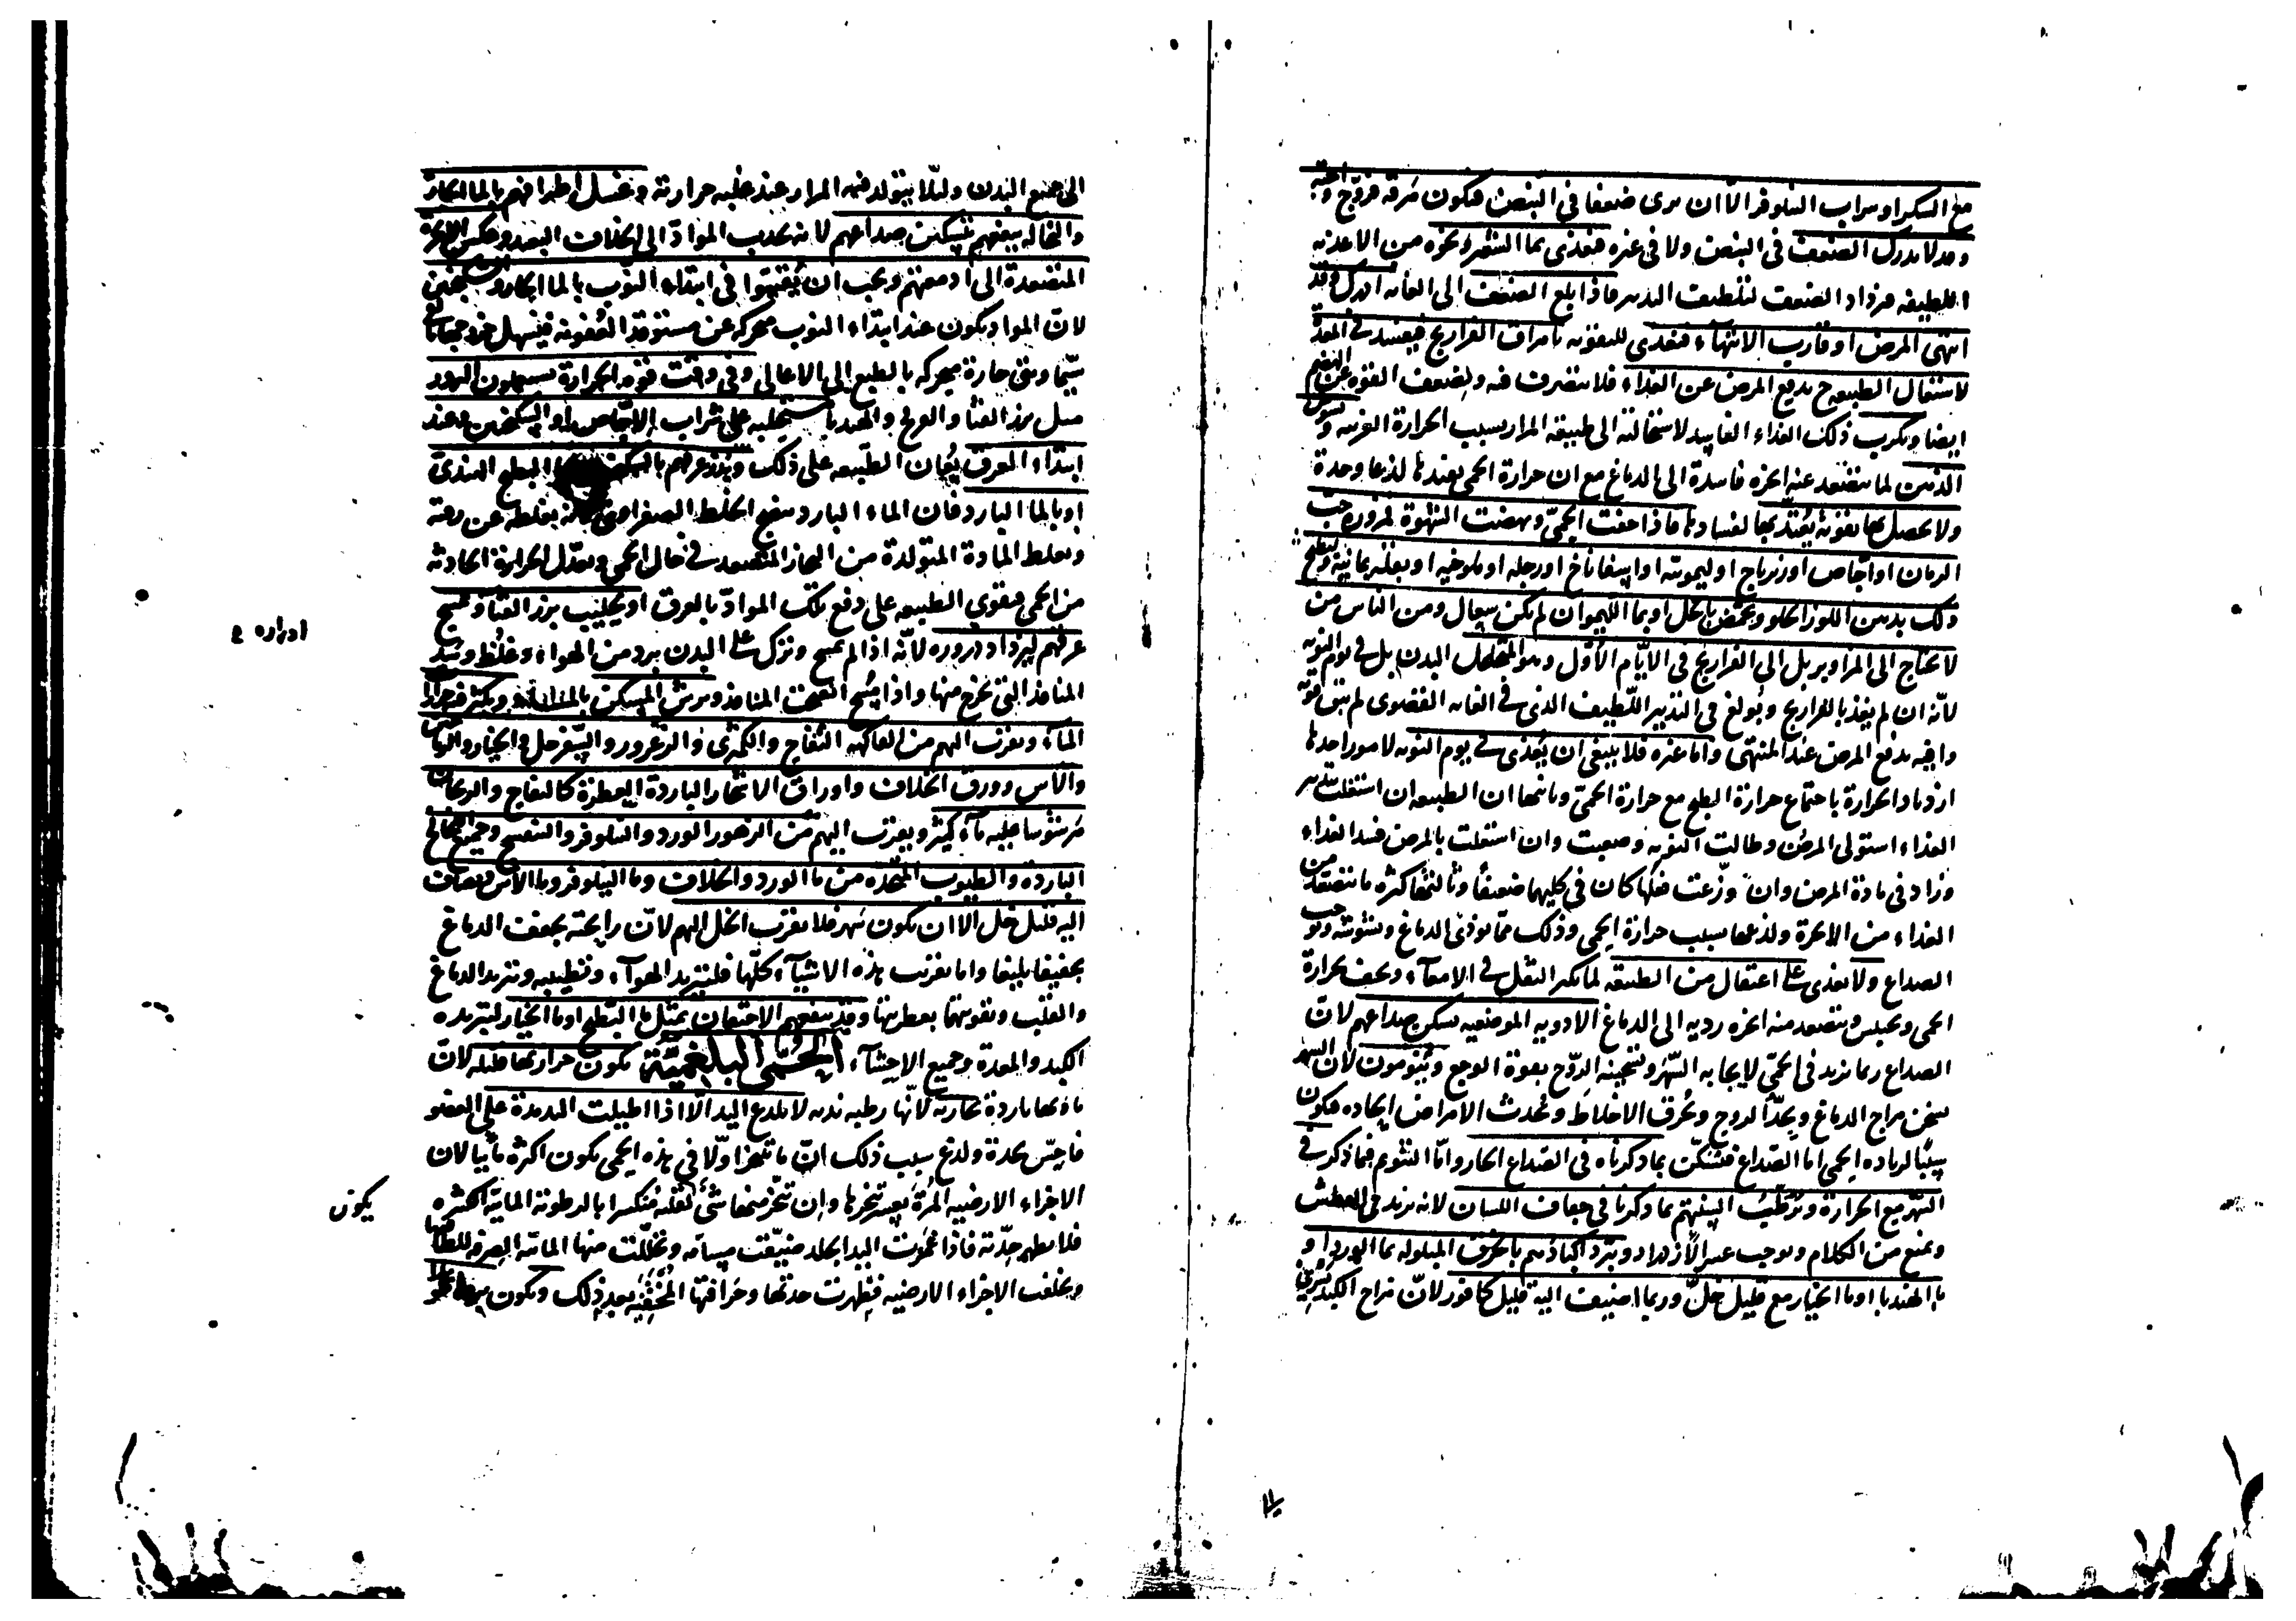 مع السكر او شراب النيلوفر الا ان يرى ضعفا في النبض فيكون مرقة فروج واحية
وقد لا يدرك الضعف في النبض ولا في غيره فيغذى بماء الشعير ونحوه من الاغذية
اللطيفة فيزداد الضعف لتلطيف التدبير فاذا بلغ الضعف الى الغاية ادرك وقد
انتهى المرض او قارب الانتهاء فيغذى للتقوية بامراق الفراريج فيفسد في المعدة
لاشتغال الطبيعة ح بدفع المرض عن الغذاء فلا يتصرف فيه ولضعف القوة عن الهضم
ايضا ويكرب ذلك الغذاء الفاسد لاستحالته الى طبيعة المرار بسبب الحرارة الغريبة ويشوش
الذهن لما يتصعد عنه ابخرة فاسدة الى الدماغ مع ان حرارة الحمى يفيدها لذعا وحدة
ولا يحصل بها تقوية يعتد بها لفسادها فاذا خفت الحمى ونهضت الشهوة فمزورة حب
الرمان او اجاص او زيرباج او ليمونية او اسفاناخ او رجلة او ملوخية او بقلة يمانية ويطبخ
ذلك بدهن اللوز الحلو ويحمض بالخل او بماء الليمو ان لم يكن سعال ومن الناس من
لا يحتاج الى المزاوير بل الى الفراريج في الايام الاول وهو المتخلخل البدن بل في يوم النوبة
لانه ان لم يغذ بالفراريج وبولغ في التدبير اللطيف الذي في الغاية القصوى لم يبق قوة
وافية بدفع المرض عند المنتهى واما غيره فلا ينبغي ان يغذى في يوم النوبة لامور احدها
ازدياد الحرارة باجتماع حرارة الطبخ مع حرارة الحمى وثانيها ان الطبيعة ان اشتغلت بتدبير
الغذاء استولى المرض وطالت النوبة وصعبت وان اشتغلت بالمرض فسد الغذاء
وزاد في مادة المرض وان وزعت فعلها كان في كليهما ضعيفا وثالثها كثرة ما يتصعد من
الغذاء من الابخرة ولذعها بسبب حرارة الحمى وذلك مما يوذي الدماغ ويشوشه ويوجب
الصداع ولا يغذى على اعتقال من الطبيعة لما يكثر الثفل في الامعاء ويجف بحرارة
الحمى ويحبس ويتصعد منه ابخرة ردية الى الدماغ الادوية الموضعية يسكن صداعهم لان
الصداع ربما يزيد في الحمى لايجابه السهر وتسخينه الروح بقوة الوجع وينومون لان السهر
يسخن مزاج الدماغ ويحد الروح ويحرق الاخلاط ويحدث الامراض الحادة فيكون
سببا لزيادة الحمى اما الصداع فيسكن بما ذكرناه في الصداع الحار واما التنويم فبما ذكر في
السهر مع الحرارة ويرطب السنتهم بما ذكرنا في جفاف اللسان لانه يزيد في العطش
ويمنع من الكلام ويوجب عسر الازدراد ويبرد اكبادهم بالخرق المبلولة بماء الورد او
ماء الهندبا او ماء الخيار مع قليل خل وربما اضيف اليه قليل كافور لان مزاج الكبد يسري
الى جميع البدن ولئلا يتولد فيه المرار عند غلبة حرارته وغسل اطرافهم بالماء الحار
والنخالة ينفعهم بتسكين صداعهم لانه يجذب المواد الى الخلاف البعيد وعكس الابخرة
المتصعدة الى ادمغتهم ويجب ان يقيئوا في ابتداء النوب بالماء الحار والسكنجبين
لان المواد يكون عند ابتداء النوب متحركة عن مستوقد العفونة فيسهل خروجها بالقي
سيما وهي حارة متحركة بالطبع الى الاعالي وفي وقت قوة الحرارة يسقون البزور
مثل بزر القثا والقرع والهندبا مستحلبة على شراب الاجاص او السكنجبين وعند
ابتداء العرق يعان الطبيعة على ذلك البطيخ الهندي
او بالماء البارد فان الماء البارد ينضج الخلط الصفراوي بغلظه عن رقته
وبغلظ المادة المتولدة من البخار المتصعد في حال الحمى وبعدل الحرارة الحادثة
من الحمى فيقوي الطبيعة على دفع تلك المواد بالعرق او بحليب بزر القثا ويمسح
عرقهم ليزداد دروره لانه اذا لم يمسح وترك على البدن برد من الهواء وغلظ وسد
المنافذ التي يخرج منها واذا مسح انفتحت المنافذ ويرش المسكن بالماء ويكثر فيه
الماء ويقرب اليهم من الفاكهة التفاح والكمثرى والزعرور والسفرجل والخيار
والآس وورق الخلاف واوراق الاشجار الباردة العطرة كالتفاح والريحان
مرشوشا عليه ماء كثير ويقرب اليهم من الزهور الورد والنيلوفر والبنفسج
الباردة والطيوب المتخذة من ماء الورد والخلاف وماء النيلوفر وماء الآس ويضاف
اليه قليل خل الا ان يكون سهر فلا يقرب الخل اليهم لان رايحته يجفف الدماغ
تجفيفا بليغا واما يقرب هذه الاشياء كلها فلتبريد الهواء وتطييبه وتبريد الدماغ
والقلب وتقويتهما بعطريتها وقد ينفعهم الاحتقان بمثل ماء البطيخ او ماء الخيار لتبريده
الكبد والمعدة وجميع الاحشاء الحمى البلغمية يكون حرارتها قليلة لان
مادتها باردة بخارية لانها رطبة ندية لا يلذع اليد الا اذا اطيلت اليد مدة على العضو
فاحس بحدة ولذع سبب ذلك ان ما يتبخر اولا في هذه الحمى يكون اكثره مائيا لان
الاجزاء الارضية المرة يعسر تبخرها وان تبخر منها شي لقلته فينكسر بالرطوبة المائية الكثيرة
فلا يظهر حدته فاذا غمرت اليد الجلد ضيقت مسامه وتحللت منها المائية الصرفة للطافتها
وتخلف الاجزاء الارضية فظهرت حدتها وحرافتها المختفية بعد ذلك ويكون
ادراره
يكون